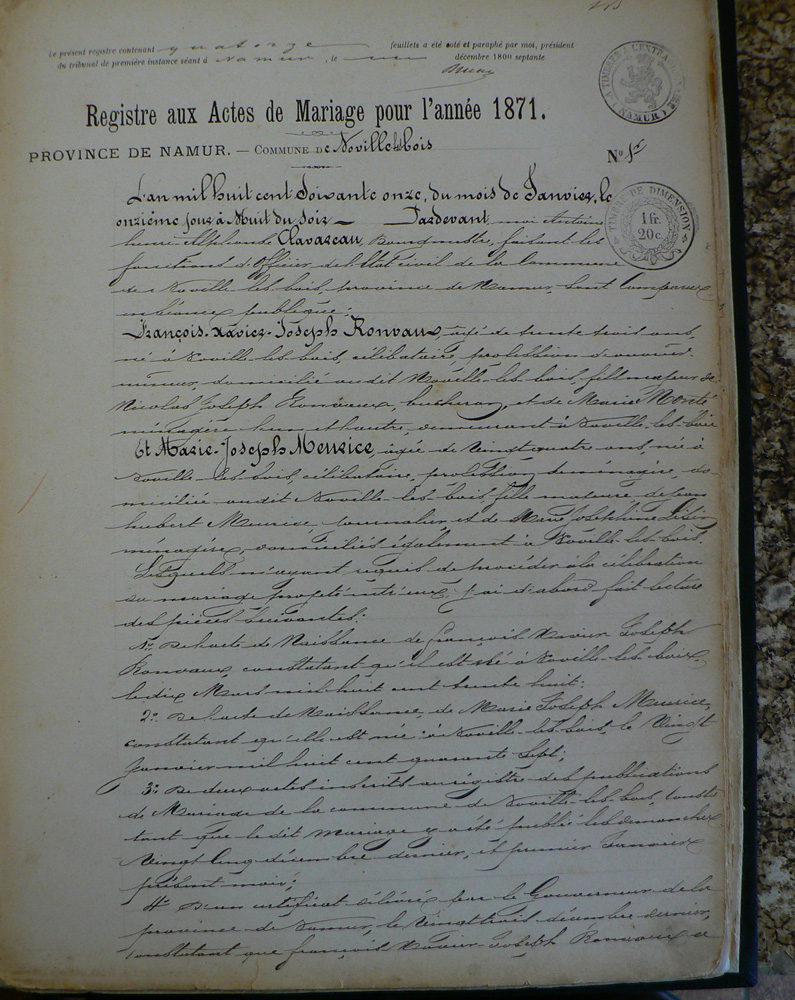 Le présent registre contenant quatorze feuillets a été coté et paraphé par moi, président
du tribunal de première instance séant à Namur, le un décembre 1800 septante
A TIMBRER A L'EXTRA
(NAMUR)
Registre aux Actes de Mariage pour l'année 1871.
PROVINCE DE NAMUR. — COMMUNE DE Noville les bois
N° 1er
TIMBRE DE DIMENSION
1 fr.
20 c.
L'an mil huit cent Soixante onze, du mois de Janvier, le
onzième jour à Huit du soir — Pardevant, moi Antoine
henri Alphonse Clavareau, Bourgmestre, faisant les
fonctions d'officier de l'État civil de la Commune
de Noville-les-bois, province de Namur, sont Comparus
en séance publique:
François-Xavier-Joseph Ronvaux, âgé de trente trois ans,
né à Noville-les-bois, célibataire, profession d'ouvrier
mineur, domicilié audit Noville-les-bois, fils majeur de
Nicolas Joseph Ronvaux, bucheron, et de Marie
ménagère, demeurant à Noville-les-bois
Et Marie-Joseph Meurice, âgée de Vingt quatre ans, née à
Noville-les-bois, célibataire, profession de ménagère, do-
miciliée audit Noville-les-bois, fille majeure de Jean
hubert Meurice, journalier, et de Marie Joséphine
ménagère, domiciliés également à Noville-les-bois.
Lesquels m'ayant requis de procéder à la célébration
du mariage projeté entr'eux; j'ai d'abord fait lecture
des pièces suivantes:
1° De l'acte de Naissance de françois Xavier Joseph
Ronvaux, constatant qu'il est né à Noville-les-bois,
le dix Mars mil huit cent trente huit;
2° De l'acte de Naissance, de Marie Joseph Meurice,
constatant qu'elle est née à Noville-les-bois, le Vingt
Janvier mil huit cent quarante Sept;
3° De deux actes inscrits au régistre des publications
de Mariage de la commune de Noville-les-bois, consta-
tant que le dit mariage a été publié les dimanches
Vingt Cinq décembre dernier, et premier Janvier
présent mois;
4° D'un certificat délivré par le Gouverneur de la
province de Namur, le Vingt trois décembre dernier,
constatant que françois Xavier Joseph Ronvaux a